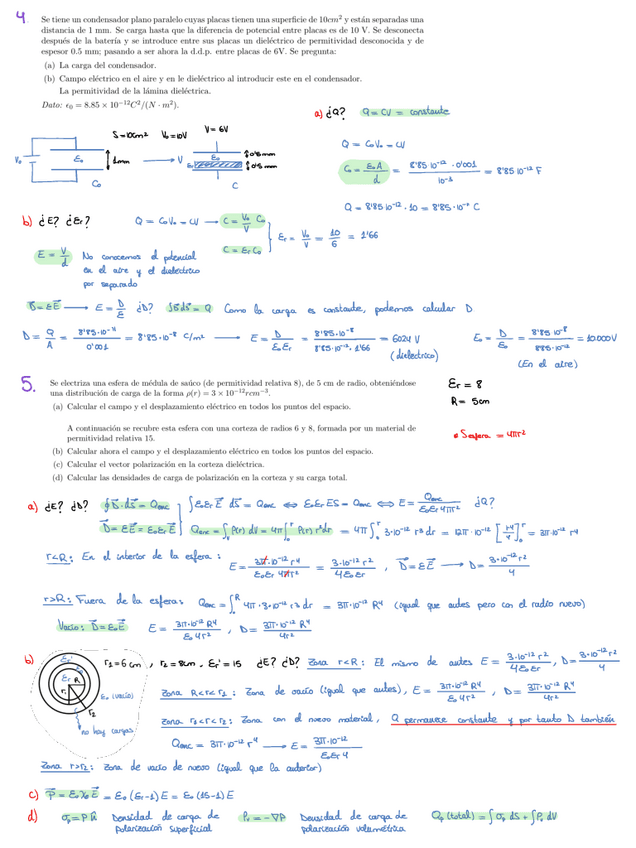 4.
Se tiene un condensador plano paralelo cuyas placas tienen una superficie de 10cm² y están separadas una
distancia de 1 mm. Se carga hasta que la diferencia de potencial entre placas es de 10 V. Se desconecta
después de la batería y se introduce entre sus placas un dieléctrico de permitividad desconocida y de
espesor 0.5 mm; pasando a ser ahora la d.d.p. entre placas de 6V. Se pregunta:
(a) La carga del condensador.
(b) Campo eléctrico en el aire y en le dieléctrico al introducir este en el condensador.
La permitividad de la lámina dieléctrica.
Dato: ε₀ = 8.85 × 10⁻¹²C²/(N · m²).
a) ¿Q? Q = CV = constante
S=10cm² V₀=10V V=6V
V₀ E₀ 1mm C₀ V E₀ 0'5mm 0'5mm C
Q = C₀V₀ = CV
C₀ = ε₀A/d = 8'85 10⁻¹² · 0'001 / 10⁻³ = 8'85 10⁻¹² F
Q = 8'85 10⁻¹² · 10 = 8'85 · 10⁻¹¹ C
b) ¿E? ¿εr? Q = C₀V₀ = CV → C = V₀/V C₀
C = εr C₀
εr = V₀/V = 10/6 = 1'66
E = V/d No conocemos el potencial
en el aire y el dieléctrico
por separado
D = εE → E = D/ε ¿D? ∫D dS = Q Como la carga es constante, podemos calcular D
D = Q/A = 8'85·10⁻¹¹ / 0'001 = 8'85·10⁻⁸ C/m² → E = D/ε₀εr = 8'85·10⁻⁸ / 8'85·10⁻¹²·1'66 = 6024 V
(dieléctrico)
E₀ = D/ε₀ = 8'85 10⁻⁸ / 8'85·10⁻¹² = 10.000V
(En el aire)
5.
Se electriza una esfera de médula de saúco (de permitividad relativa 8), de 5 cm de radio, obteniéndose
una distribución de carga de la forma ρ(r) = 3 × 10⁻¹²rcm⁻³.
(a) Calcular el campo y el desplazamiento eléctrico en todos los puntos del espacio.
A continuación se recubre esta esfera con una corteza de radios 6 y 8, formada por un material de
permitividad relativa 15.
(b) Calcular ahora el campo y el desplazamiento eléctrico en todos los puntos del espacio.
(c) Calcular el vector polarización en la corteza dieléctrica.
(d) Calcular las densidades de carga de polarización en la corteza y su carga total.
εr = 8
R = 5cm
• Sesfera = 4πr²
a) ¿E? ¿D? ∮D·dS = Qenc ∫ε₀εr E dS = Qenc ⟺ ε₀εr ES = Qenc ⟺ E = Qenc / ε₀εr 4πr² ¿Q?
D = εE = ε₀εr E Qenc = ∫₀ʳ P(r) dV = 4π∫₀ʳ P(r) r²dr = 4π∫₀ʳ 3·10⁻¹² r³ dr = 12π·10⁻¹² [r⁴/4]₀ʳ = 3π·10⁻¹² r⁴
r<R: En el interior de la esfera: E = 3π·10⁻¹² r⁴ / ε₀εr 4πr² = 3·10⁻¹² r² / 4ε₀εr , D = εE → D = 3·10⁻¹² r² / 4
r>R: Fuera de la esfera: Qenc = ∫₀ᴿ 4π·3·10⁻¹² r³ dr = 3π·10⁻¹² R⁴ (igual que antes pero con el radio nuevo)
Vacío: D = ε₀E E = 3π·10⁻¹² R⁴ / ε₀ 4r² , D = 3π·10⁻¹² R⁴ / 4r²
b) r₁=6cm , r₂=8cm . εr'=15 ¿E? ¿D? Zona r<R: El mismo de antes E = 3·10⁻¹² r² / 4ε₀εr , D = 3·10⁻¹² r² / 4
εr' εr R r₁ r₂ ε₀ (vacío)
no hay cargas
Zona R<r<r₁: Zona de vacío (igual que antes), E = 3π·10⁻¹² R⁴ / ε₀ 4r² , D = 3π·10⁻¹² R⁴ / 4r²
Zona r₁<r<r₂: Zona con el nuevo material, Q permanece constante y por tanto D también
Qenc = 3π·10⁻¹² r⁴ → E = 3π·10⁻¹² / ε₀εr 4
Zona r>r₂: Zona de vacío de nuevo (igual que la anterior)
c) P = ε₀χe E = ε₀ (εr-1) E = ε₀ (15-1) E
d) σp = P n̂ Densidad de carga de polarización superficial ρp = -∇P Densidad de carga de polarización volumétrica Qp (total) = ∫σp dS + ∫ρp dV